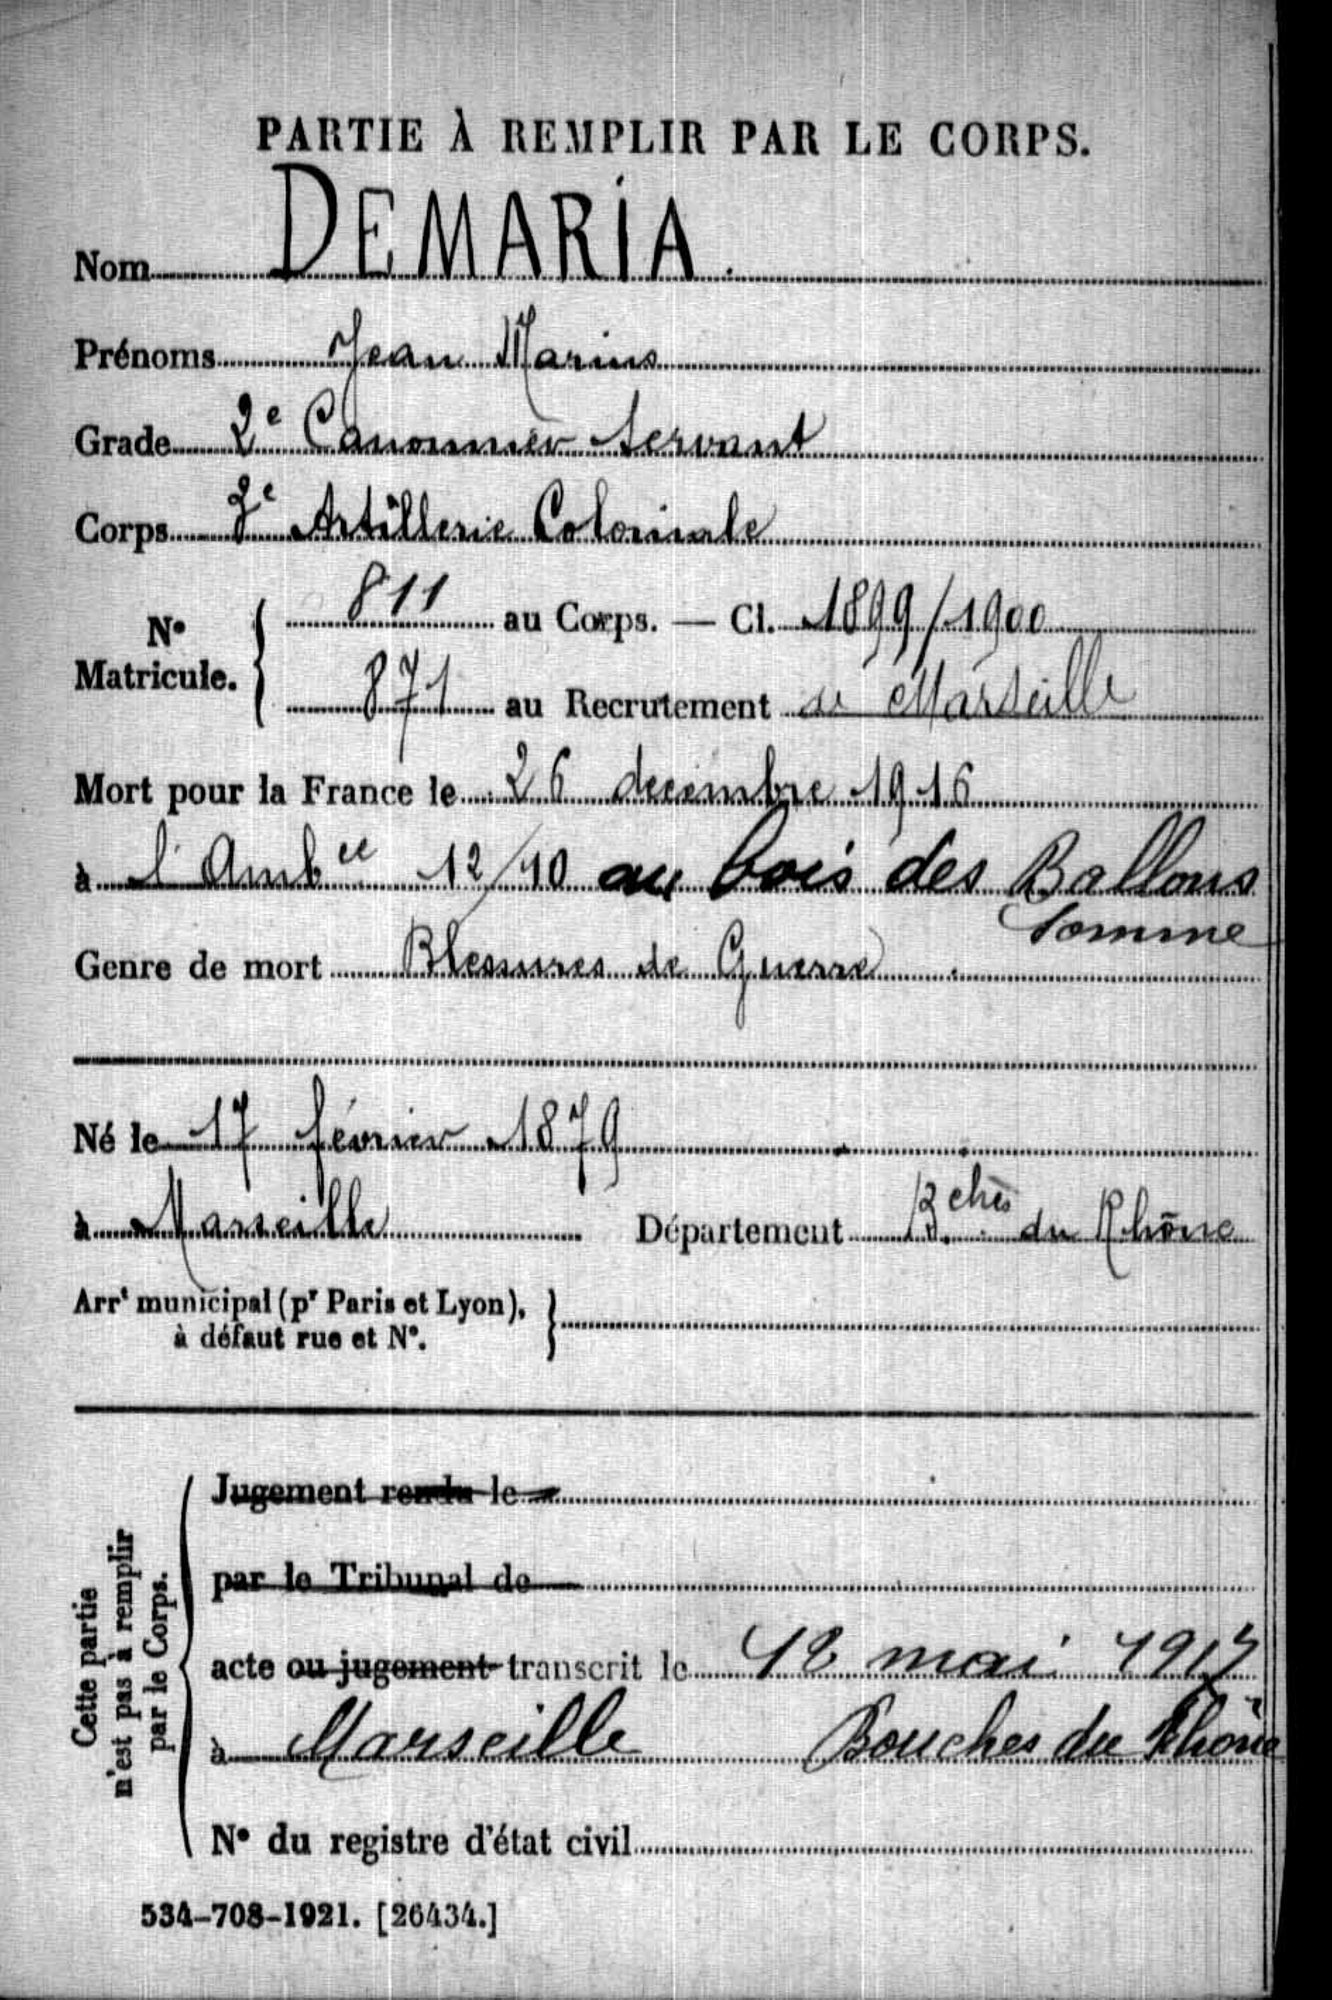 PARTIE À REMPLIR PAR LE CORPS.
Nom DEMARIA.
Prénoms Jean Marius
Grade 2e Canonnier Servant
Corps 3e Artillerie Coloniale
N° Matricule. 811 au Corps. — Cl. 1899/1900
871 au Recrutement de Marseille
Mort pour la France le 26 décembre 1916
à l'Ambce 12/10 au bois des Ballons
Somme
Genre de mort Blessures de Guerre
Né le 17 février 1879
à Marseille Département B.ches du Rhône
Arrt municipal (pr Paris et Lyon),
à défaut rue et N°.
Cette partie n'est pas à remplir par le Corps.
Jugement rendu le
par le Tribunal de
acte ou jugement transcrit le 12 mai 1917
à Marseille Bouches du Rhône
N° du registre d'état civil
534-708-1921. [26434.]